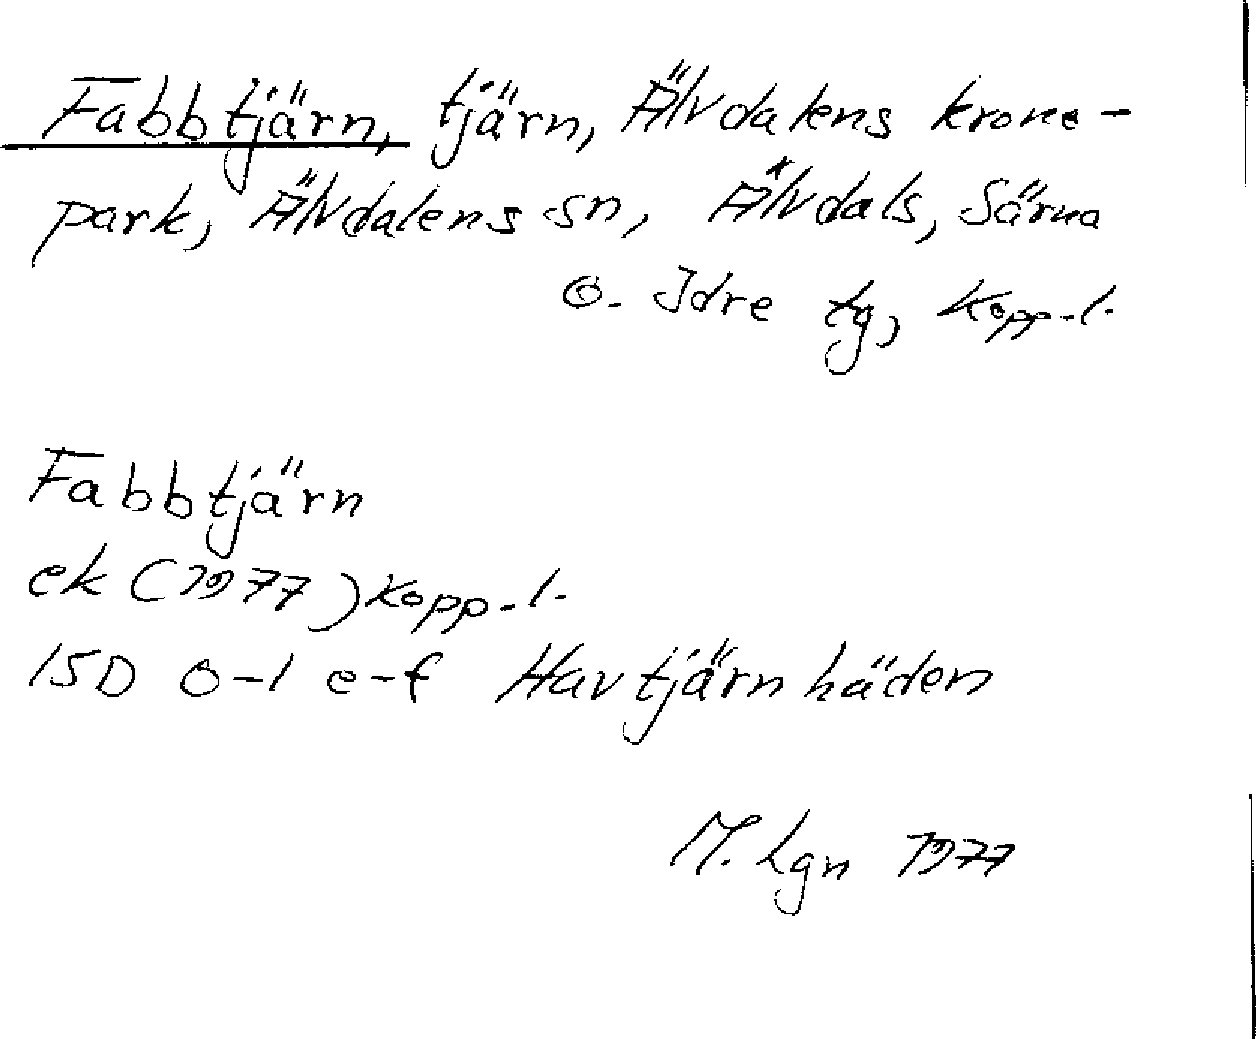 Fabbtjärn, tjärn, Älvdalens krono-
park, Älvdalens sn, Älvdals, Särna
o. Idre tg, Kopp.l.
Fabbtjärn
ek (1977) Kopp.l.
15D 0-1 e-f Havtjärnhäden
M. Lgn 1977